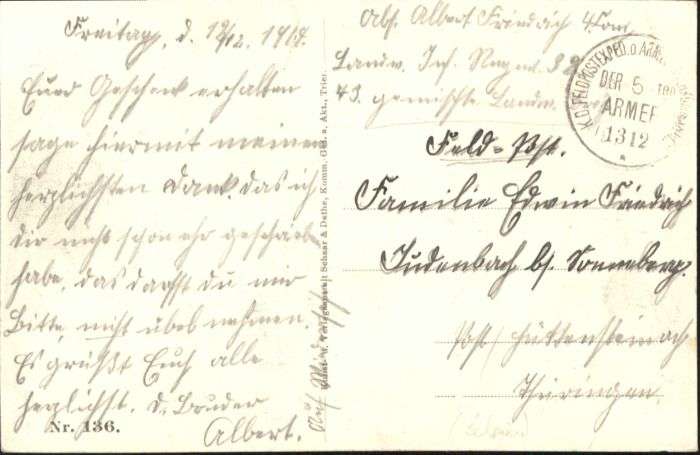 Freitag, d. 12/12. 1914.
Euer Geschenk erhalten
sage hiermit meinen
herzlichsten Dank. das ich
dir nicht schon ehr geschrieben
habe, das darfst du mir
Bitte, nicht übel nehmen.
Es grüßt Euch alle
herzlichst. d. Bruder
Albert.
Nr. 136.
Schaar & Dathe, Komm.-Ges. a. Akt., Trier.
Auf
Abs. Albert Friedrich 4. Com
Landw. Inf. Regmt.
43. gemischte Landw.
K.D. FELDPOSTEXPED. D. ARMEE
DER 5
ARMEE
13 12
Feld-Post.
Familie Edwin Friedrich
Judenbach b/ Sonneberg.
Post Hüttensteinach
Thüringen.